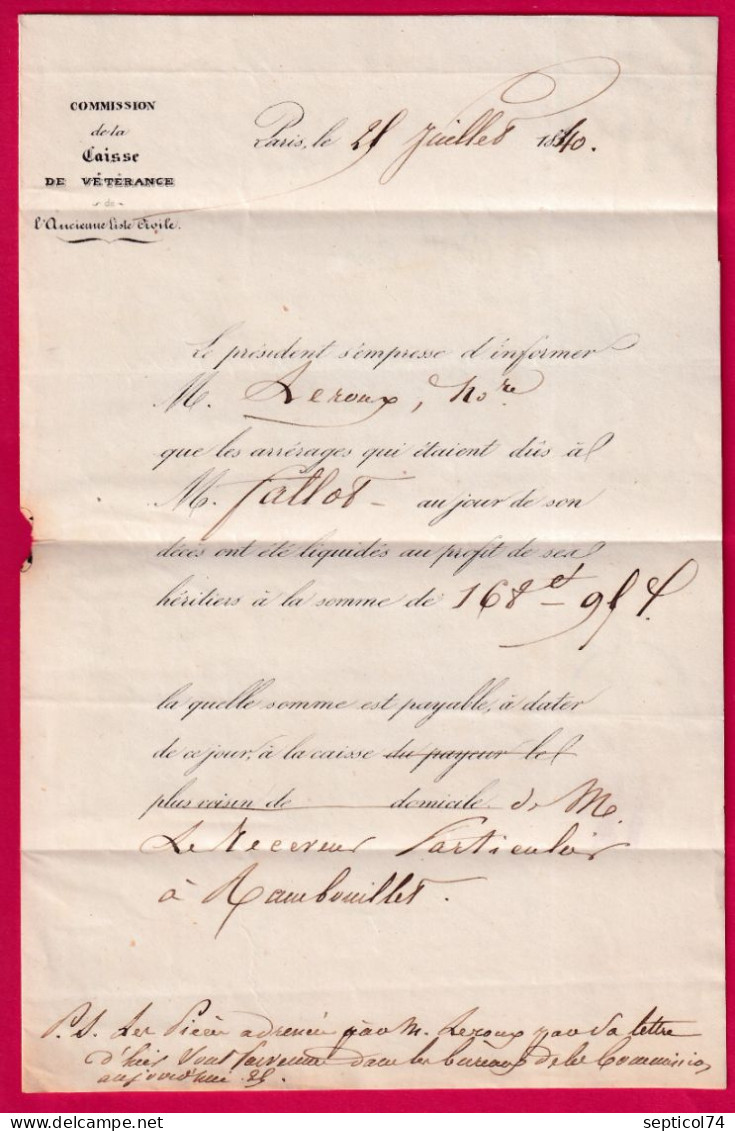 COMMISSION
de la
Caisse
DE VÉTÉRANCE
de
l'Ancienne Liste Civile.
Paris, le 25 Juillet 1840.
Le président s'empresse d'informer
M. Leroux, Nore
que les arrérages qui étaient dûs à
M. Fallot au jour de son
décès ont été liquidés au profit de ses
héritiers à la somme de 168 95
la quelle somme est payable, à dater
de ce jour, à la caisse du payeur le
plus voisin de domicile de M.
Le Receveur Particulier
à Rambouillet.
P. S. Les Pièces adressées par M. Leroux par sa lettre
d'hier sont parvenues dans les bureaux de la Commission
aujourd'hui 25.
septicol74